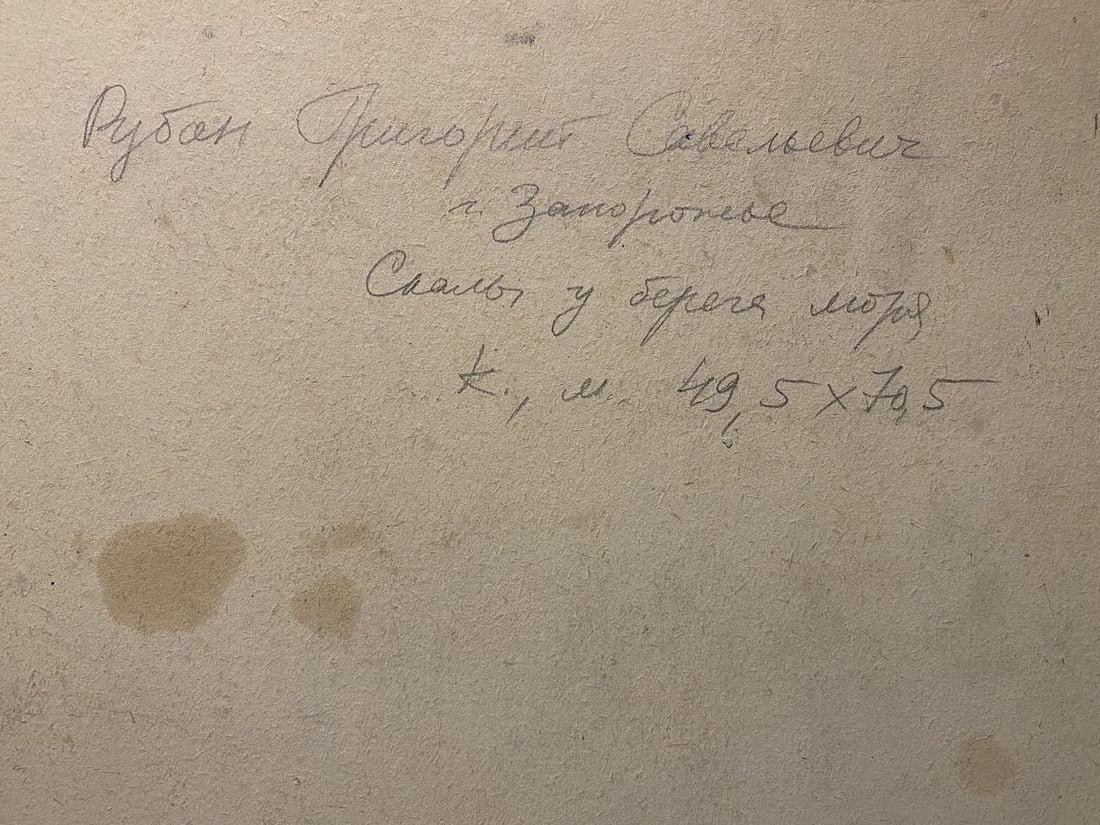 Рубан Григорий Савельевич
г. Запорожье
Скалы у берега моря
к., м. 49,5х70,5